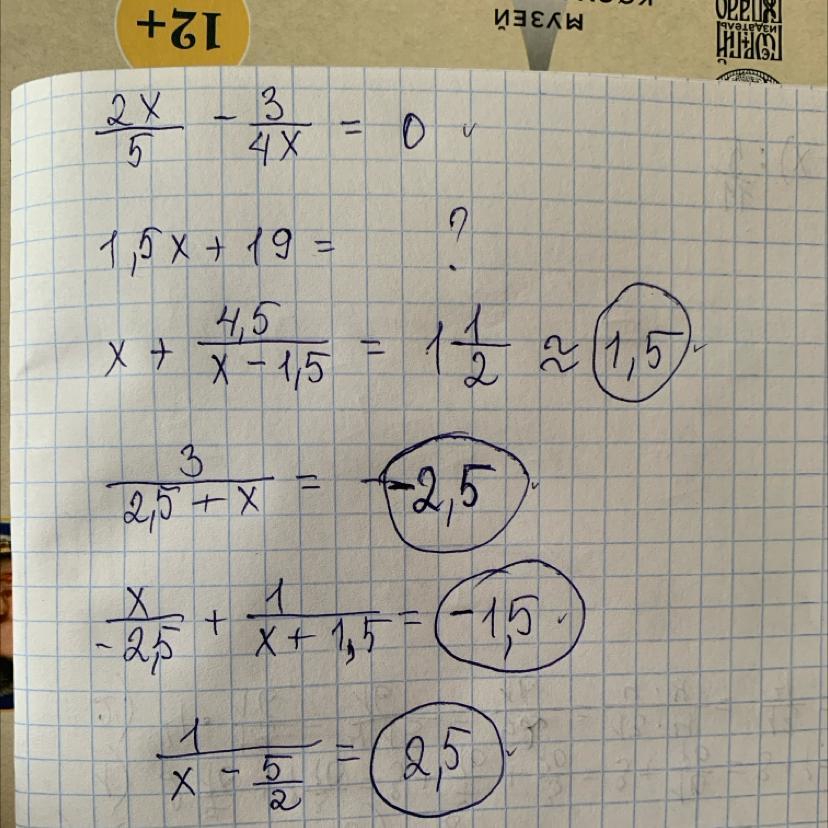 12+
МУЗЕЙ
ИЗДАТЕЛЬ
\frac{2x}{5} - \frac{3}{4x} = 0 ✓
1,5x + 19 = ?
x + \frac{4,5}{x - 1,5} = 1\frac{1}{2} ≈ 1,5 ✓
\frac{3}{2,5 + x} = -2,5 ✓
\frac{x}{-2,5} + \frac{1}{x + 1,5} = -1,5 ✓
\frac{1}{x - \frac{5}{2}} = 2,5 ✓